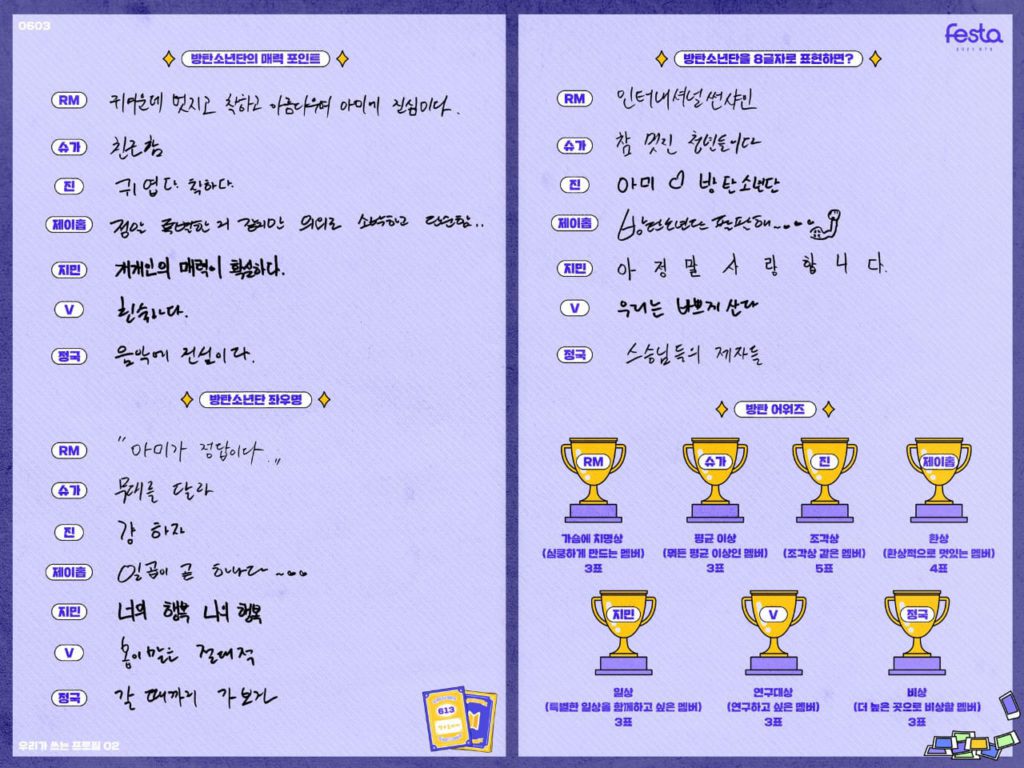 0603
방탄소년단의 매력 포인트
RM 귀여운데 멋지고 착하고 아름다우며 아미에 진심이다.
슈가 친근함
진 귀엽다. 착하다.
제이홉 정말 특별한 거 같지만 의외로 소박하고 단순함..
지민 개개인의 매력이 확실하다.
V 친숙하다.
정국 음악에 진심이다.
방탄소년단 좌우명
RM "아미가 정답이다.."
슈가 무대를 달라
진 강 하자
제이홉 일곱이 곧 하나다~...
지민 너의 행복 나의 행복
V 말은 절대적
정국 갈 때까지 가보자
613
우리가 쓰는 프로필 02
festa
2021 BTS
방탄소년단을 8글자로 표현하면?
RM 인터내셔널 썬샤인
슈가 참 멋진 청년들이다
진 아미 ♡ 방탄소년단
제이홉 방탄소년단 판판해~...
지민 아 정 말 사 랑 합 니 다.
V 우리는 바쁘게 산다
정국 스승님들의 제자들
방탄 어워즈
RM 슈가 진 제이홉
가슴에 치명상 평균 이상 조각상 환상
(심쿵하게 만드는 멤버) (뭐든 평균 이상인 멤버) (조각상 같은 멤버) (환상적으로 맛있는 멤버)
3표 3표 5표 4표
지민 V 정국
일상 연구대상 비상
(특별한 일상을 함께하고 싶은 멤버) (연구하고 싶은 멤버) (더 높은 곳으로 비상할 멤버)
3표 3표 3표